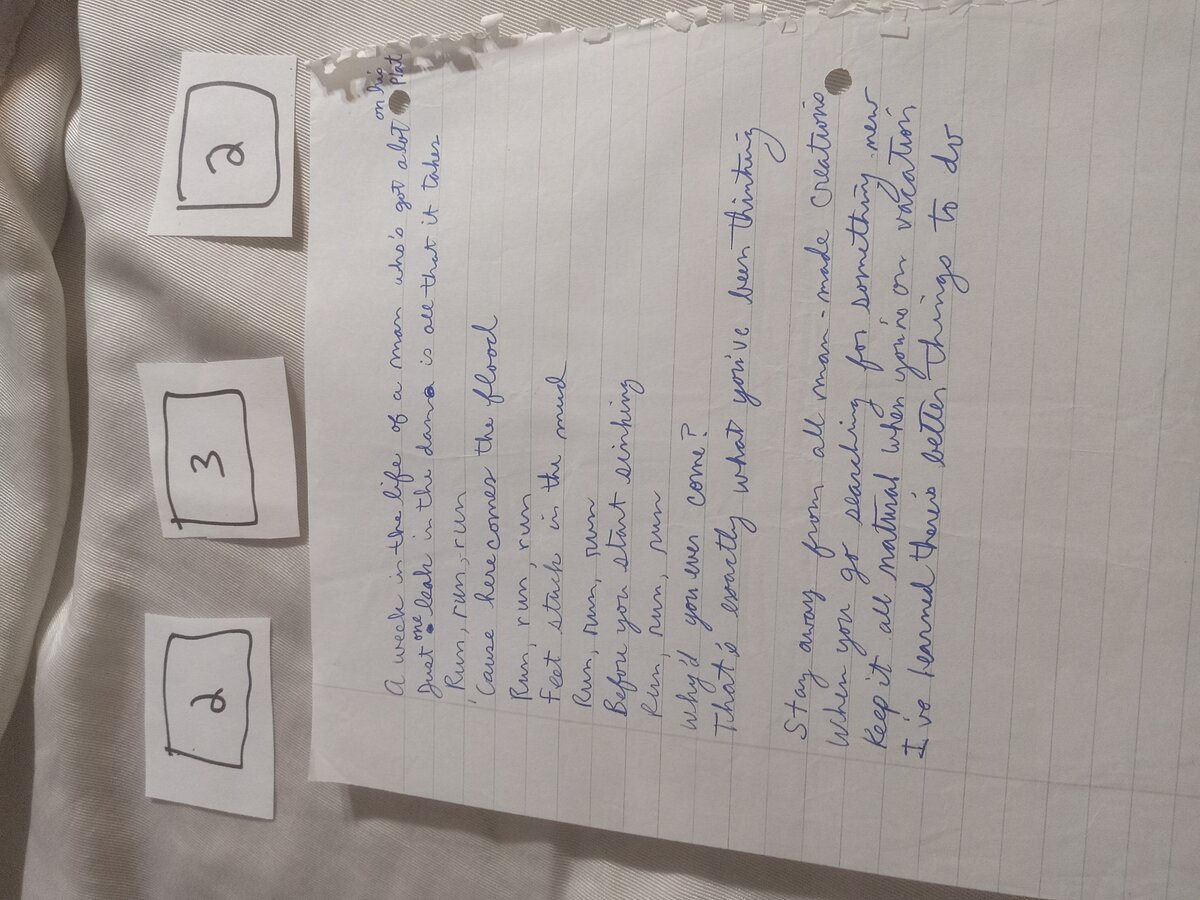 2 3 2
A week in the life of a man who's got alot on his Plat
Just one leak in the dam is all that it takes
Run, run, run
'Cause here comes the flood
Run, run, run
Feet stuck in the mud
Run, run, run
Before you start sinking
Run, run, run
Why'd you ever come?
That's exactly what you've been thinking
Stay away from all man-made creations
When you go searching for something new
Keep it all natural when you're on vacation
I've learned there's better things to do